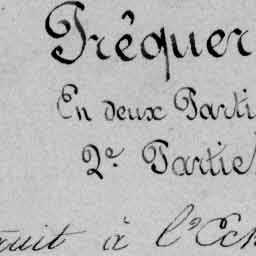 Tréquer
En deux Parti
2e Partie
duit à l'Ech